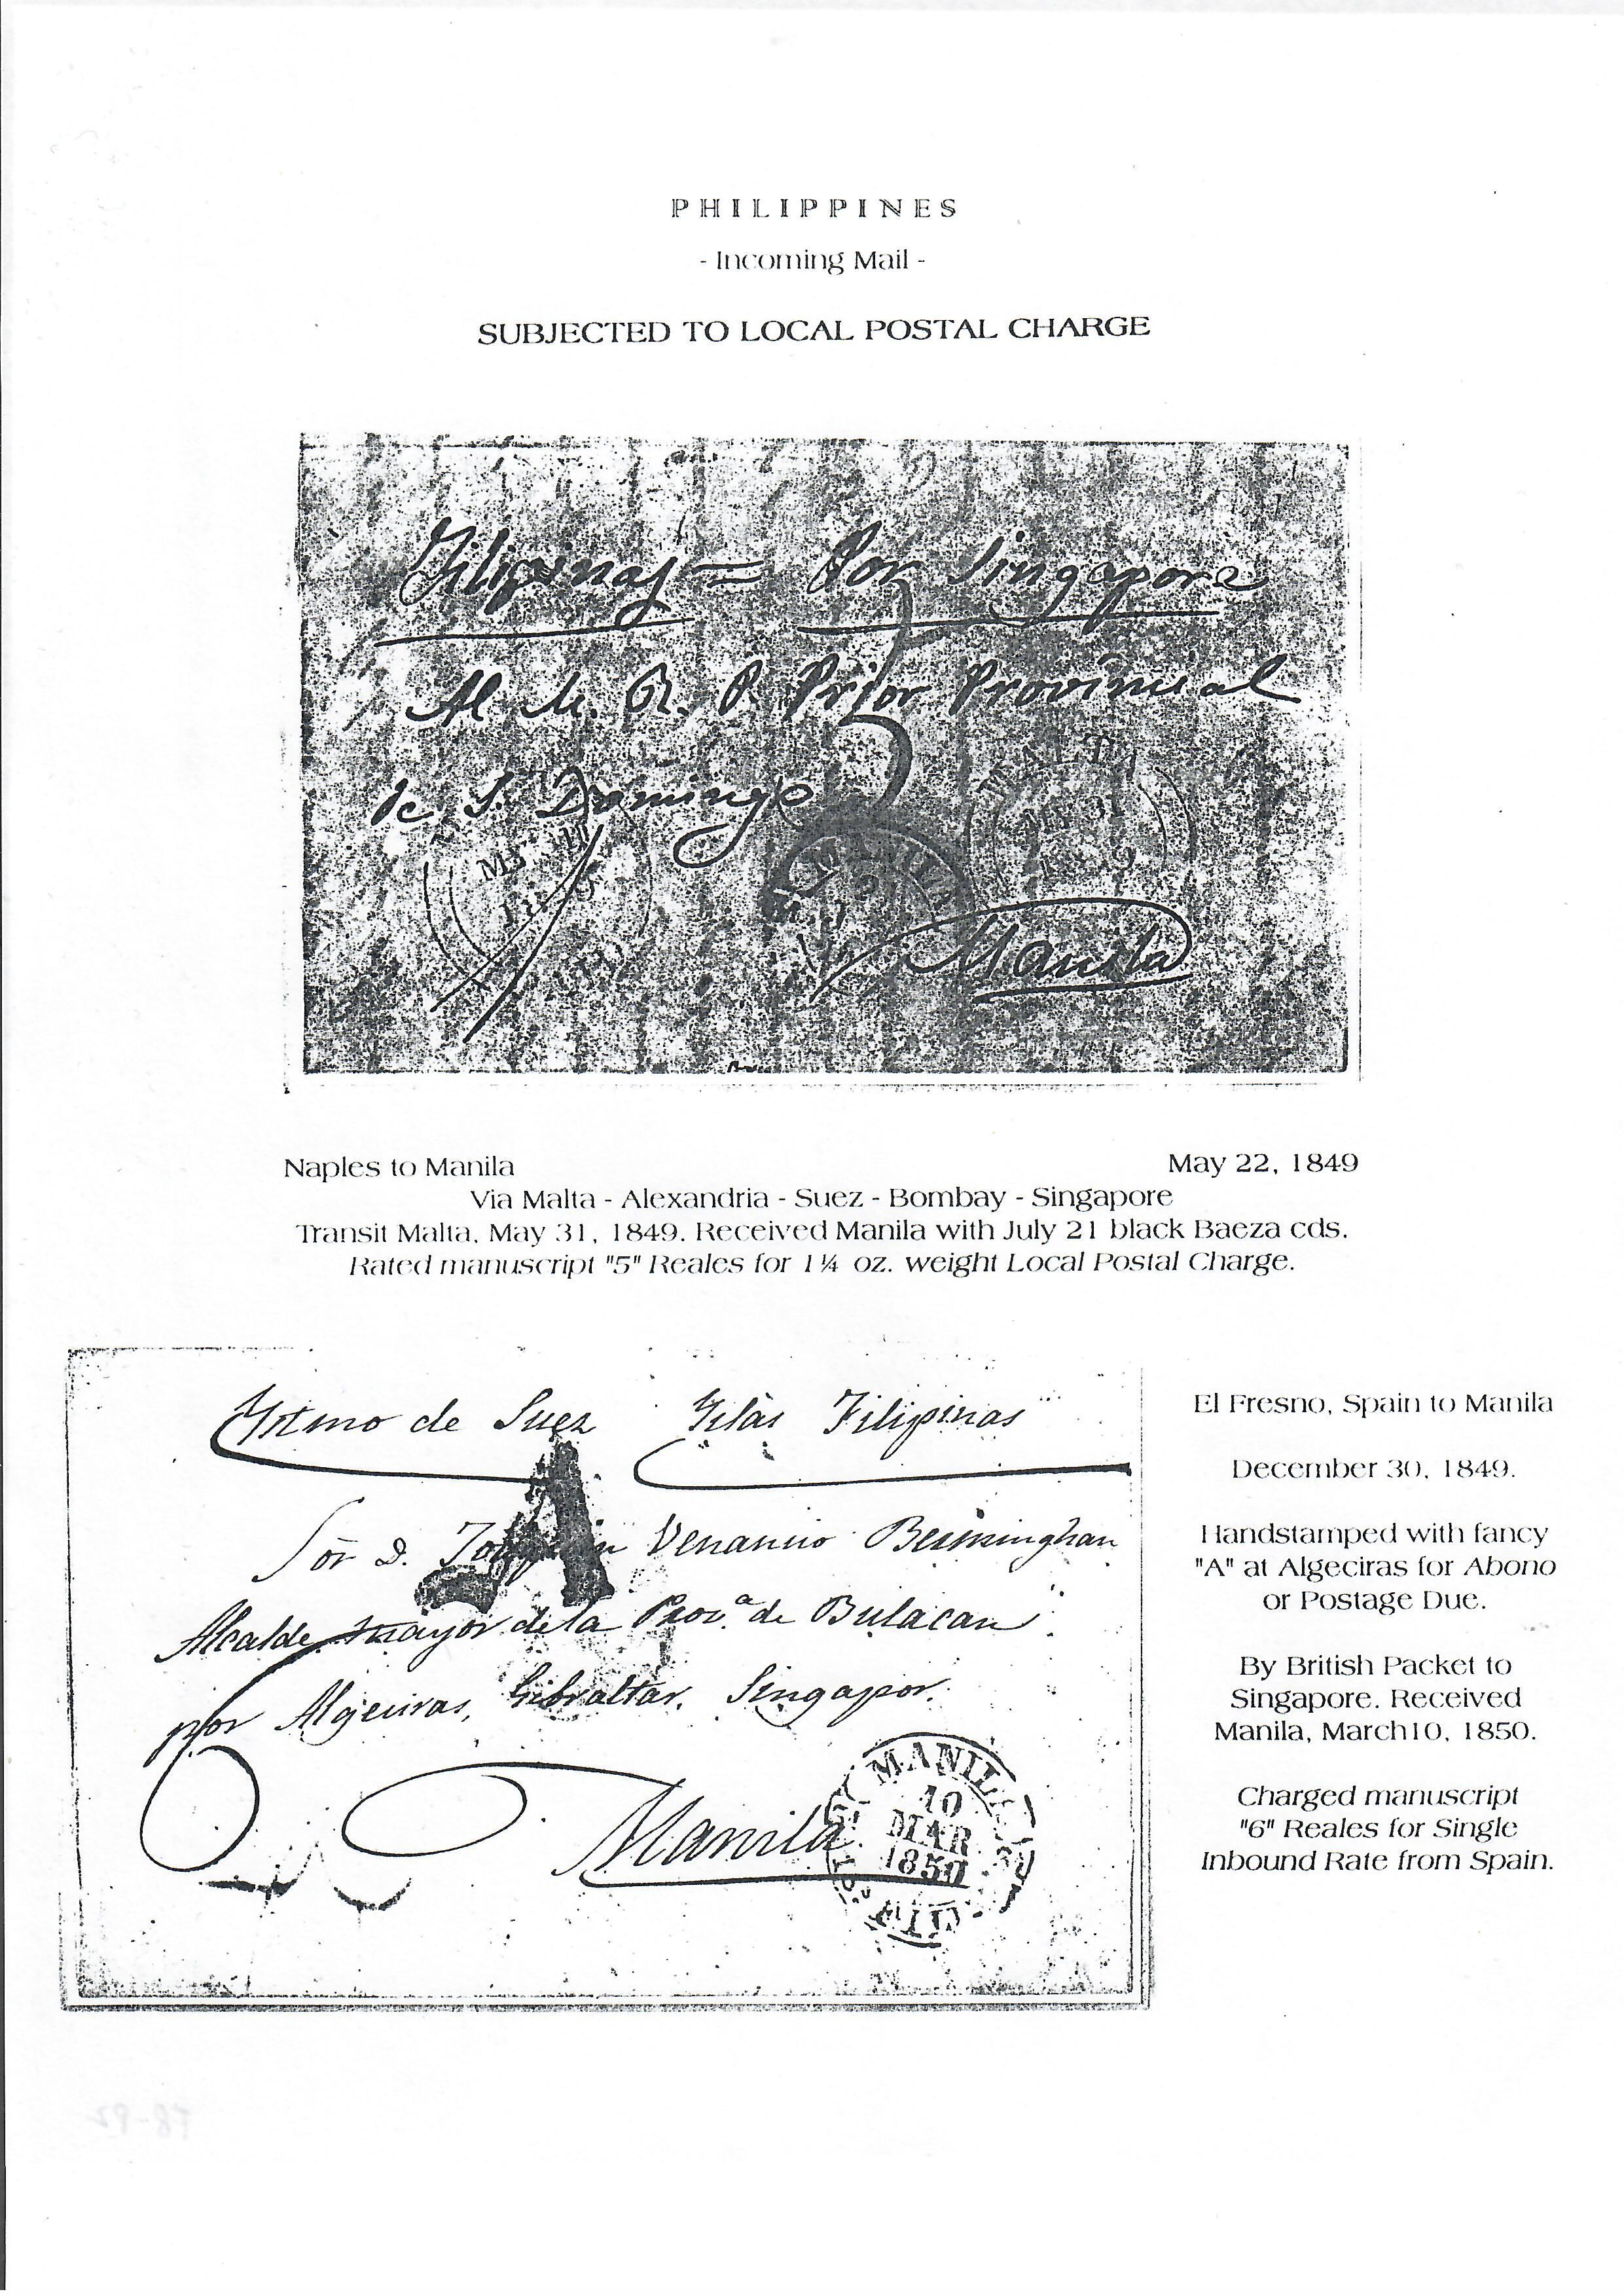 PHILIPPINES
- Incoming Mail -
SUBJECTED TO LOCAL POSTAL CHARGE
Filipinas = Por Singapore
Al M. R. P. Prior Provincial
de S. Domingo
5
MALTA
MY 31
MANILA
21
Manila
Naples to Manila May 22, 1849
Via Malta - Alexandria - Suez - Bombay - Singapore
Transit Malta, May 31, 1849. Received Manila with July 21 black Baeza cds.
Rated manuscript "5" Reales for 1¼ oz. weight Local Postal Charge.
Ystmo de Suez Yslas Filipinas
A
Sor D. Joaquin Venancio Berminghan
Alcalde mayor de la Prov.ª de Bulacan
por Algeciras, Gibraltar, Singapor.
Manila
MANILA
10
MAR
1850
El Fresno, Spain to Manila
December 30, 1849.
Handstamped with fancy
"A" at Algeciras for Abono
or Postage Due.
By British Packet to
Singapore. Received
Manila, March10, 1850.
Charged manuscript
"6" Reales for Single
Inbound Rate from Spain.